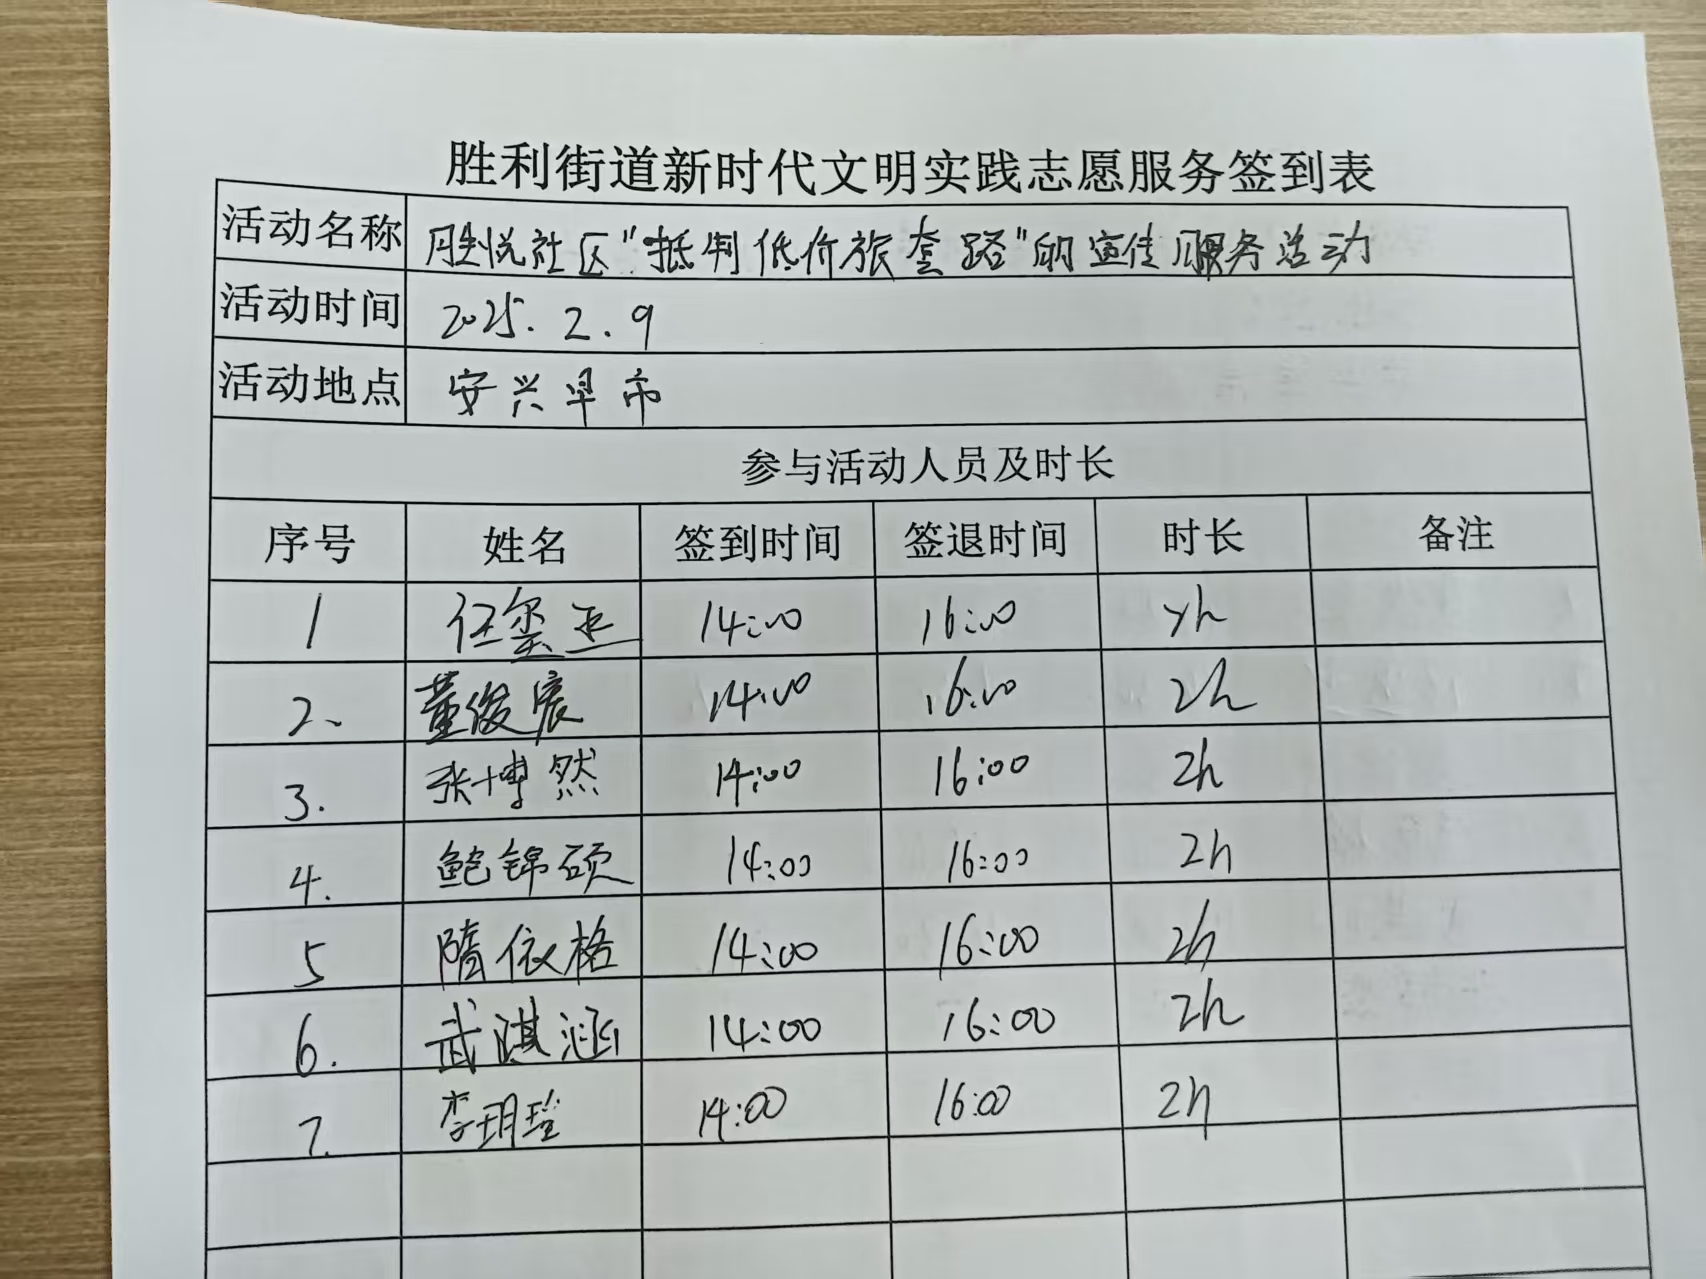 胜利街道新时代文明实践志愿服务签到表
活动名称 胜悦社区"抵制低价旅套路"的宣传服务活动
活动时间 2025.2.9
活动地点 安兴早市
参与活动人员及时长
序号 姓名 签到时间 签退时间 时长 备注
1 任玺亚 14:00 16:00 2h
2、 董俊宸 14:00 16:00 2h
3. 张博然 14:00 16:00 2h
4. 鲍锦硕 14:00 16:00 2h
5 隋依格 14:00 16:00 2h
6. 武淇涵 14:00 16:00 2h
7. 李玥瑄 14:00 16:00 2h